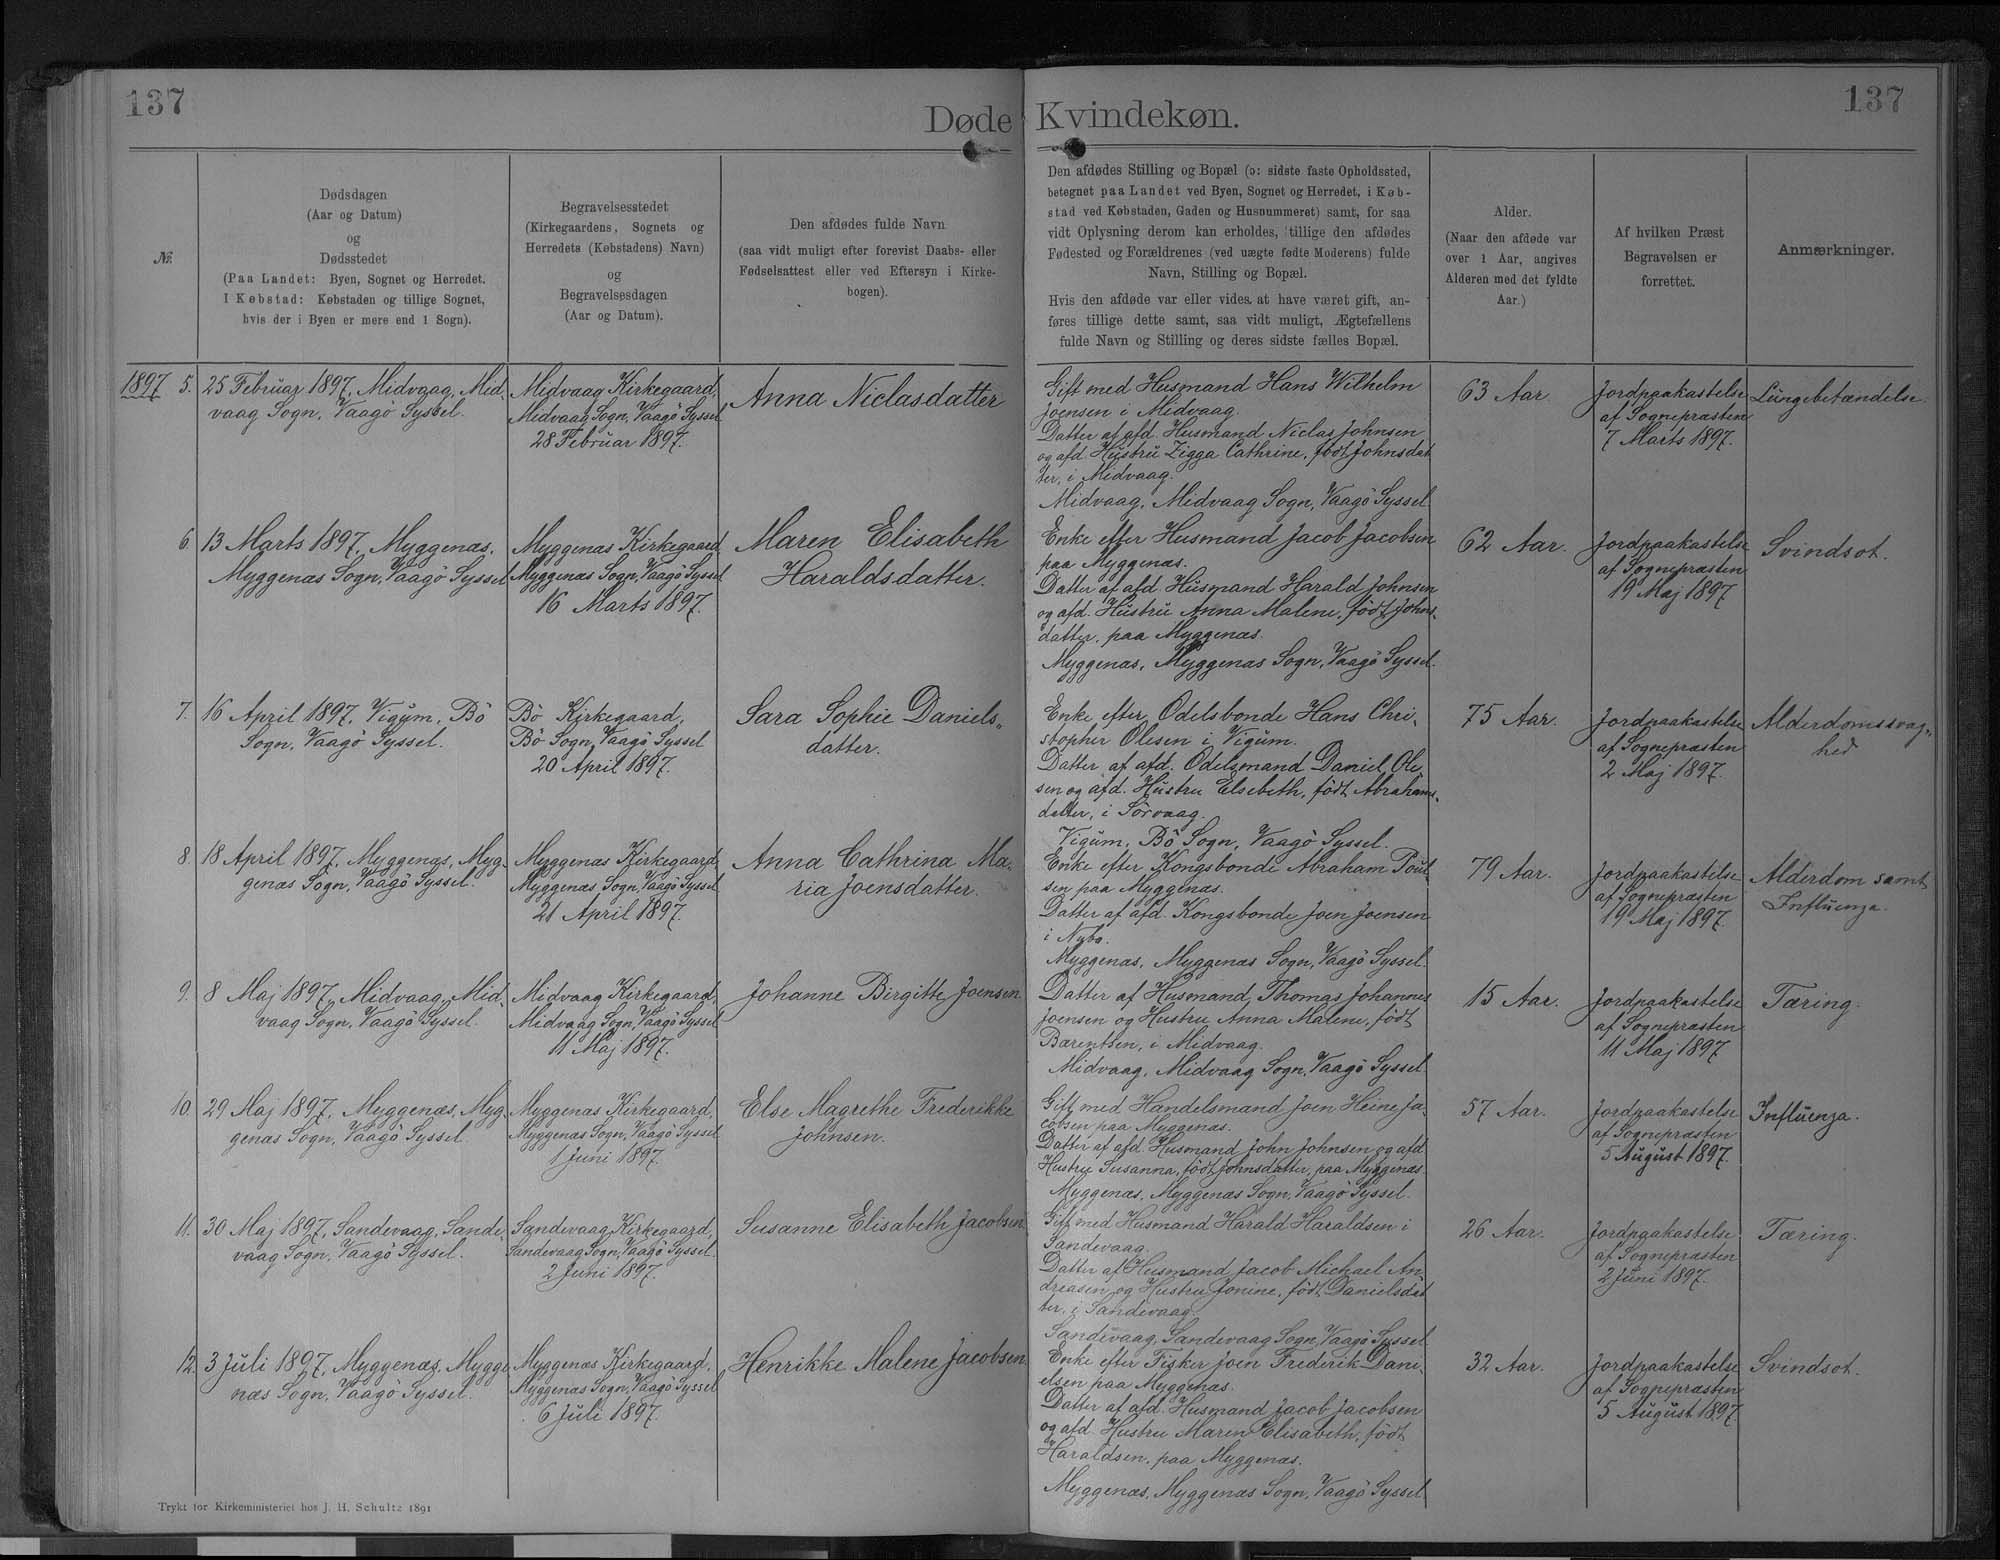 137
137
Døde Kvindekøn.
№
Dødsdagen
(Aar og Datum)
og
Dødsstedet
(Paa Landet: Byen, Sognet og Herredet.
I Købstad: Købstaden og tillige Sognet,
hvis der i Byen er mere end 1 Sogn).
Begravelsesstedet
(Kirkegaardens, Sognets og
Herredets (Købstadens) Navn)
og
Begravelsesdagen
(Aar og Datum).
Den afdødes fulde Navn
(saa vidt muligt efter forevist Daabs- eller
Fødselsattest eller ved Eftersyn i Kirke-
bogen).
Den afdødes Stilling og Bopæl (ɔ: sidste faste Opholdssted,
betegnet paa Landet ved Byen, Sognet og Herredet, i Køb-
stad ved Købstaden, Gaden og Husnummeret) samt, for saa
vidt Oplysning derom kan erholdes, tillige den afdødes
Fødested og Forældrenes (ved uægte fødte Moderens) fulde
Navn, Stilling og Bopæl.
Hvis den afdøde var eller vides at have været gift, an-
føres tillige dette samt, saa vidt muligt, Ægtefællens
fulde Navn og Stilling og deres sidste fælles Bopæl.
Alder.
(Naar den afdøde var
over 1 Aar, angives
Alderen med det fyldte
Aar.)
Af hvilken Præst
Begravelsen er
forrettet.
Anmærkninger.
1897
5.
25 Februar 1897, Midvaag, Mid-
vaag Sogn, Vaagö Syssel.
Midvaag Kirkegaard,
Midvaag Sogn, Vaagö Syssel
28 Februar 1897.
Anna Niclasdatter
Gift med Husmand Hans Wilhelm
Joensen i Midvaag.
Datter af afd. Husmand Niclas Johnsen
og afd. Hustru Zigga Cathrine, født Johnsdat
ter, i Midvaag.
Midvaag, Midvaag Sogn, Vaagö Syssel.
63 Aar.
Jordpaakastelse
af Sognepræsten
7 Marts 1897.
Lungebetændelse.
6.
13 Marts 1897, Myggenæs,
Myggenæs Sogn, Vaagö Syssel
Myggenæs Kirkegaard
Myggenæs Sogn, Vaagö Syssel
16 Marts 1897.
Maren Elisabeth
Haraldsdatter.
Enke efter Husmand Jacob Jacobsen
paa Myggenæs.
Datter af afd. Husmand Harald Johnsen
og afd. Hustru Anna Malene, født Johns-
datter, paa Myggenæs.
Myggenæs, Myggenæs Sogn, Vaagö Syssel.
62 Aar.
Jordpaakastelse
af Sognepræsten
19 Maj 1897
Svindsot.
7.
16 April 1897, Vigum, Bö
Sogn, Vaagö Syssel.
Bö Kirkegaard,
Bö Sogn, Vaagö Syssel
20 April 1897.
Sara Sophie Daniels-
datter.
Enke efter Odelsbonde Hans Chri-
stopher Olesen i Vigum.
Datter af afd. Odelsmand Daniel Ole-
sen og afd. Hustru Elsebeth, født Abrahams-
datter, i Sörvaag.
Vigum, Bö Sogn, Vaagö Syssel.
75 Aar.
Jordpaakastelse
af Sognepræsten
2 Maj 1897.
Alderdomssvag-
hed
8.
18 April 1897, Myggenæs, Myg-
genæs Sogn, Vaagö Syssel.
Myggenæs Kirkegaard
Myggenæs Sogn, Vaagö Syssel
21 April 1897.
Anna Cathrina Ma-
ria Joensdatter.
Enke efter Kongsbonde Abraham Poul-
sen paa Myggenæs.
Datter af afd. Kongsbonde Joen Joensen
i Nybö.
Myggenæs, Myggenæs Sogn, Vaagö Syssel.
79 Aar.
Jordpaakastelse
af Sognepræsten
19 Maj 1897.
Alderdom samt
Influenza.
9.
8 Maj 1897, Midvaag, Mid-
vaag Sogn, Vaagö Syssel.
Midvaag Kirkegaard,
Midvaag Sogn, Vaagö Syssel
11 Maj 1897.
Johanne Birgitte Joensen
Datter af Husmand Thomas Johannes
Joensen og Hustru Anna Malene, født
Barentsen, i Midvaag.
Midvaag, Midvaag Sogn, Vaagö Syssel
15 Aar.
Jordpaakastelse
af Sognepræsten
11 Maj 1897
Tæring.
10.
29 Maj 1897, Myggenæs, Myg-
genæs Sogn, Vaagö Syssel.
Myggenæs Kirkegaard,
Myggenæs Sogn, Vaagö Syssel
1 Juni 1897.
Else Magrethe Frederikke
Johnsen.
Gift med Handelsmand Joen Heine Ja-
cobsen paa Myggenæs.
Datter af afd. Husmand John Johnsen og afd
Hustru Susanna, født Johnsdatter, paa Myggenæs.
Myggenæs, Myggenæs Sogn, Vaagö Syssel.
57 Aar.
Jordpaakastelse
af Sognepræsten
5 August 1897.
Influenza.
11.
30 Maj 1897, Sandevaag, Sande-
vaag Sogn, Vaagö Syssel.
Sandevaag Kirkegaard,
Sandevaag Sogn, Vaagö Syssel.
2 Juni 1897.
Susanne Elisabeth Jacobsen
Gift med Husmand Harald Haraldsen i
Sandevaag.
Datter af Husmand Jacob Michael An
dreasen og Hustru Jonine, født Danielsdat
ter, i Sandevaag.
Sandevaag, Sandevaag Sogn, Vaagö Syssel
26 Aar.
Jordpaakastelse
af Sognepræsten
2 Juni 1897.
Tæring.
12.
3 Juli 1897, Myggenæs, Mygge-
næs Sogn, Vaagö Syssel.
Myggenæs Kirkegaard,
Myggenæs Sogn, Vaagö Syssel
6 Juli 1897.
Henrikke Malene Jacobsen
Enke efter Fisker Joen Frederik Dani-
elsen paa Myggenæs.
Datter af afd. Husmand Jacob Jacobsen
og afd. Hustru Maren Elisabeth, født
Haraldsen, paa Myggenæs.
Myggenæs, Myggenæs Sogn, Vaagö Syssel
32 Aar.
Jordpaakastelse
af Sognepræsten
5 August 1897.
Svindsot.
Trykt for Kirkeministeriet hos J. H. Schultz 1891